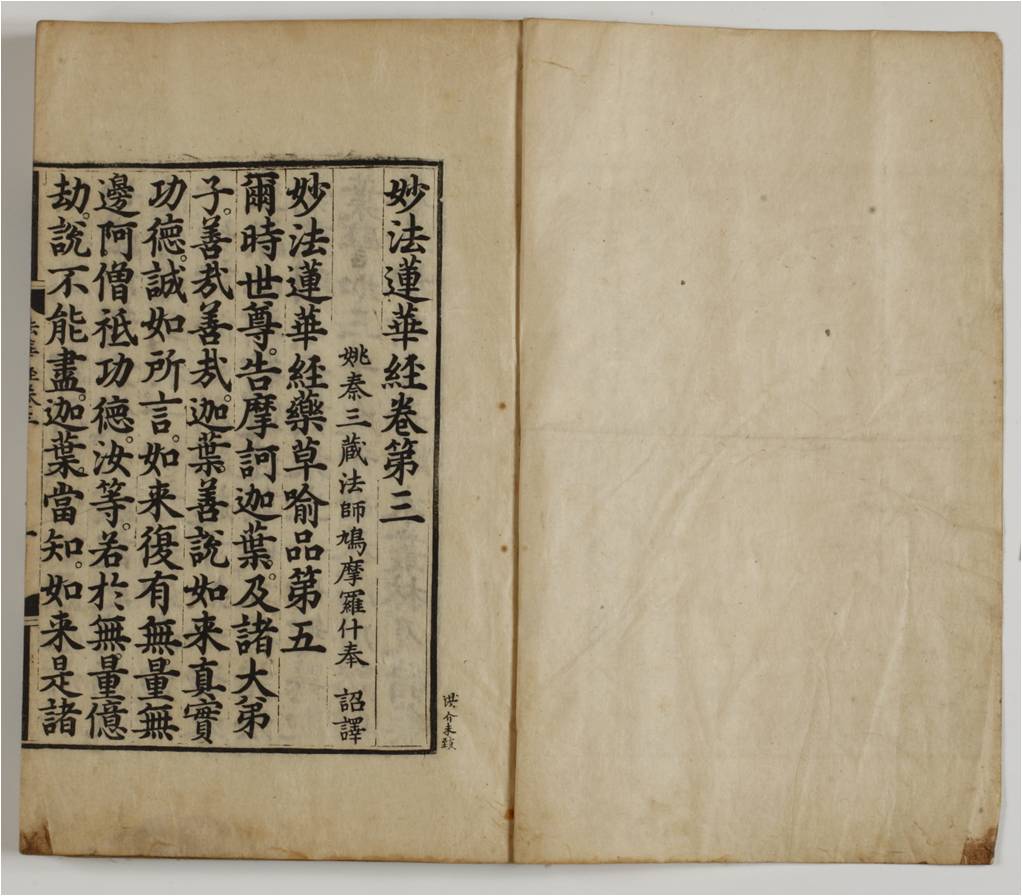 妙法蓮華經卷第三
姚秦三藏法師鳩摩羅什奉 詔譯
妙法蓮華經藥草喻品第五
爾時世尊。告摩訶迦葉。及諸大弟
子。善哉善哉。迦葉。善說如来真實
功德。誠如所言。如来復有無量無
邊阿僧祇功德。汝等。若於無量億
劫。說不能盡。迦葉。當知。如来是諸